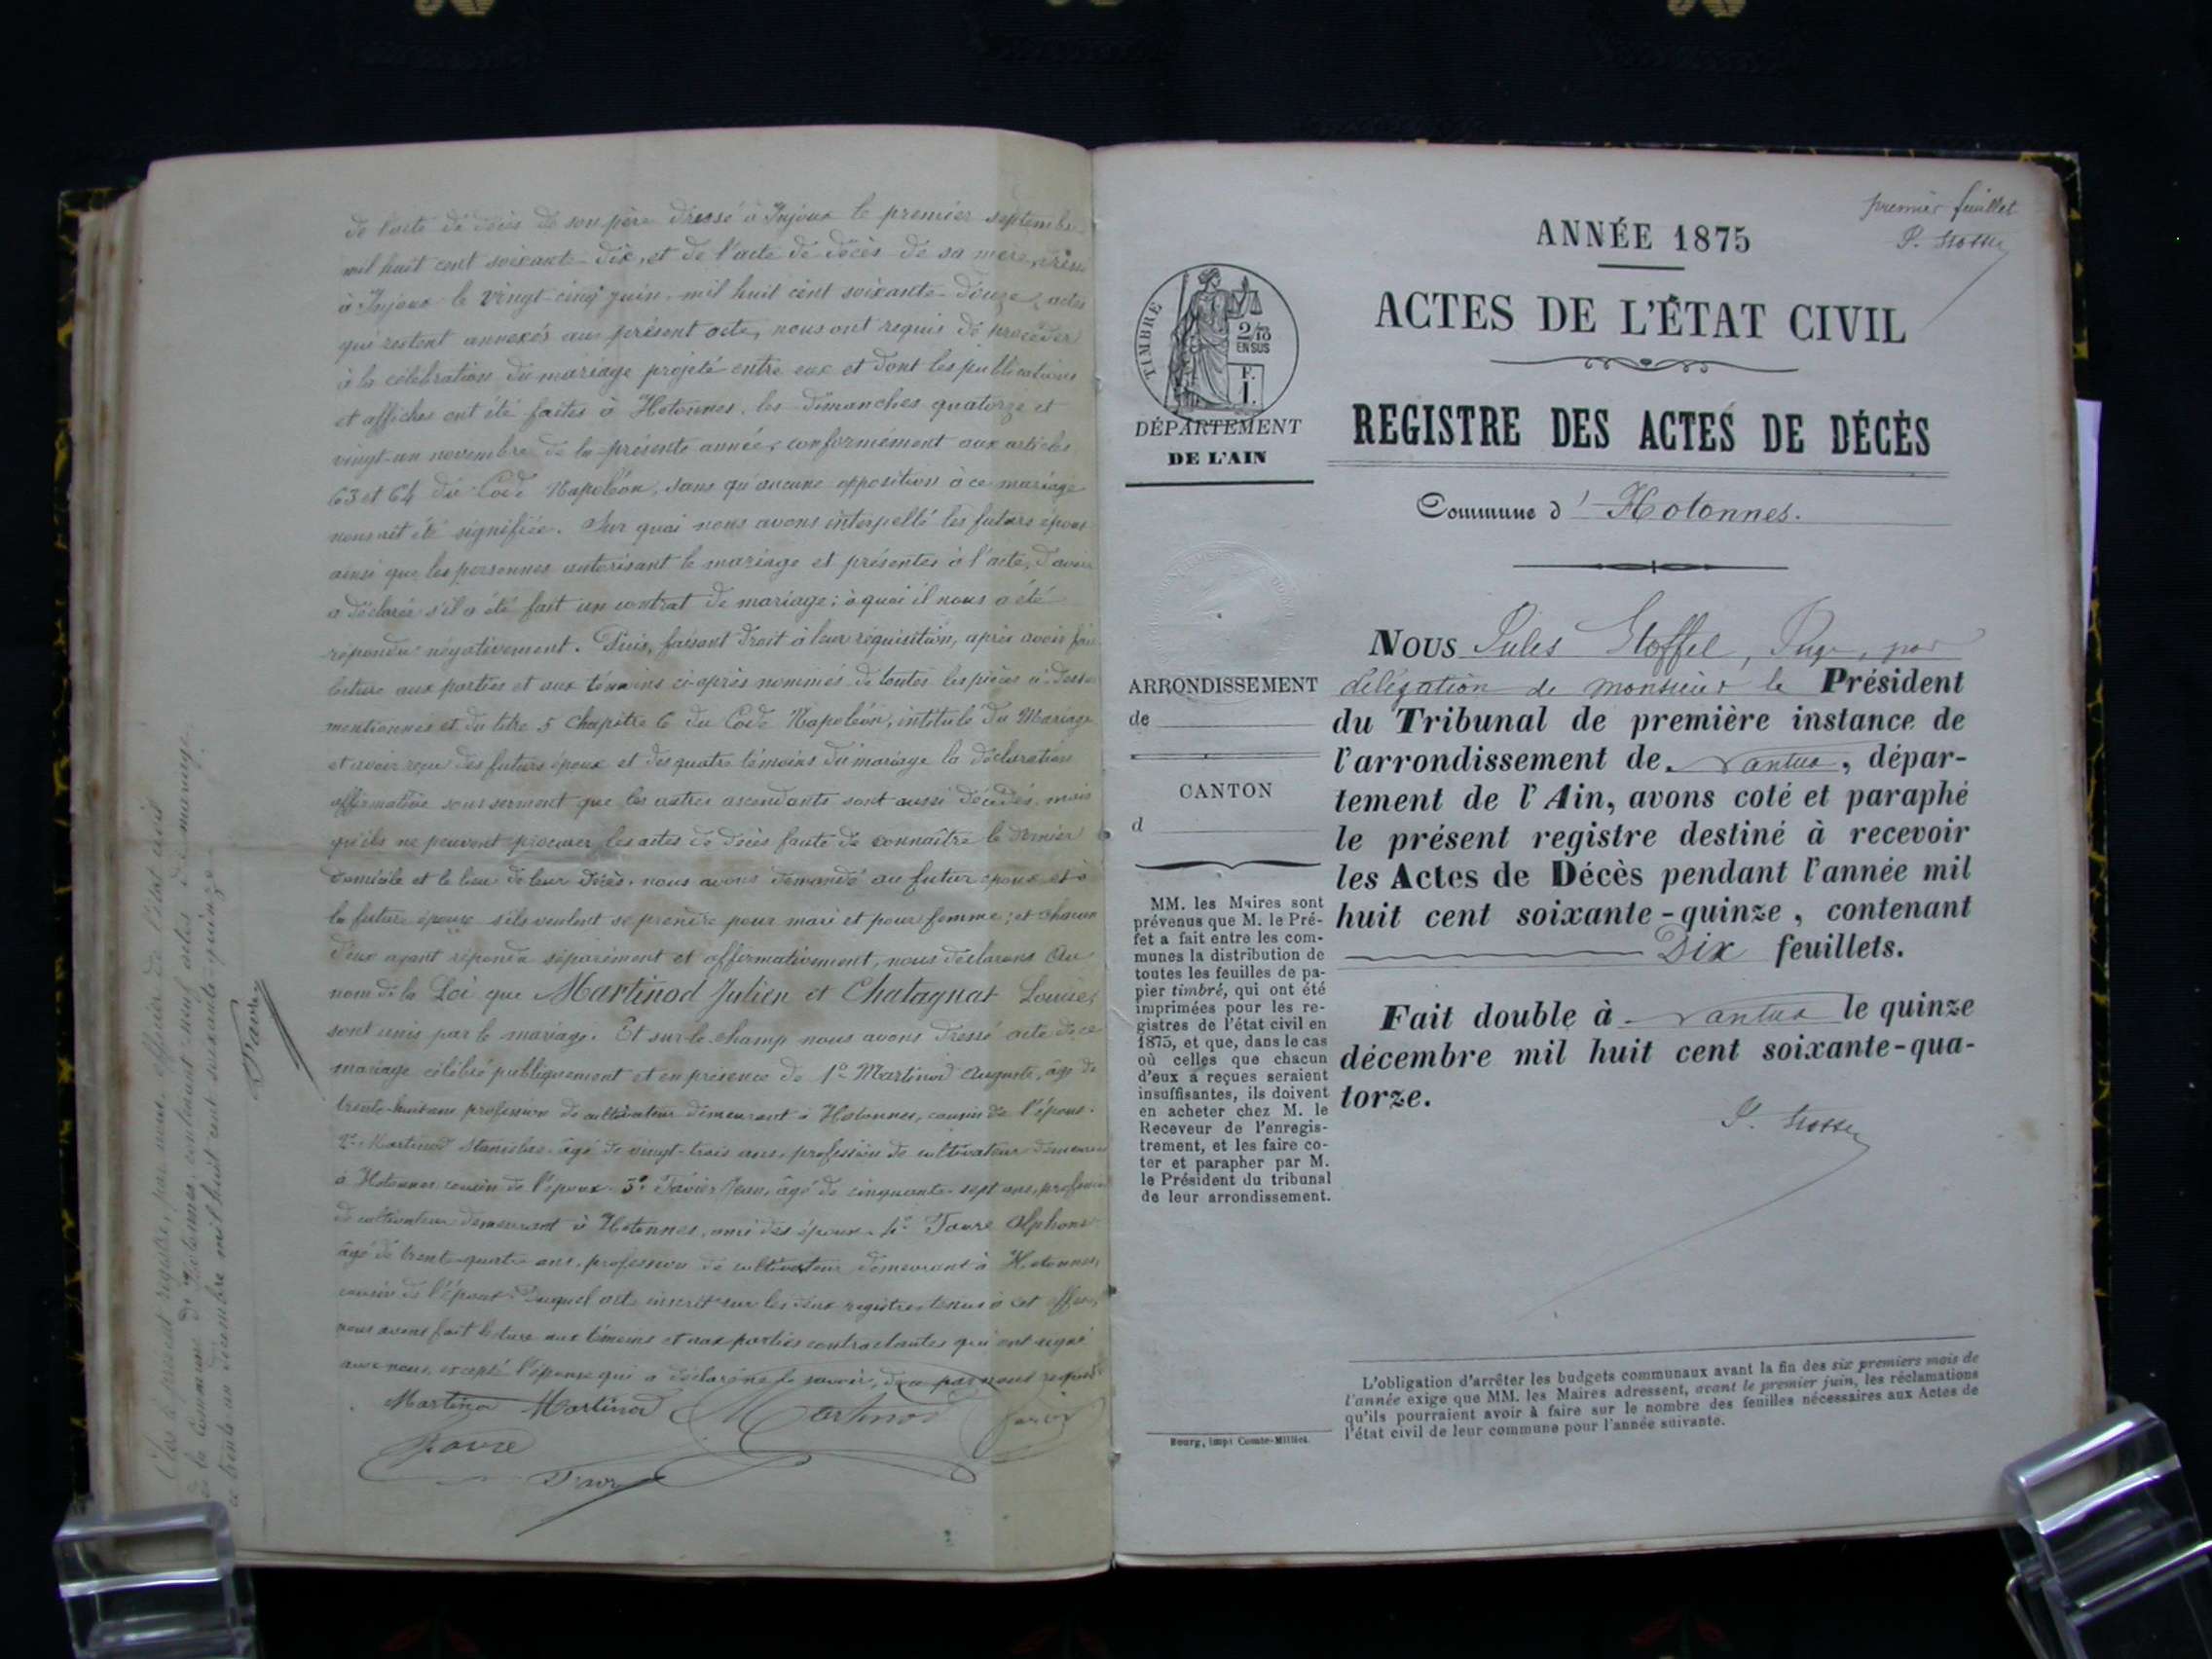 de l'acte de décès de son père dressé à Injoux le premier septembre
mil huit cent soixante-dix, et de l'acte de décès de sa mère, dressé
à Injoux le vingt-cinq juin mil huit cent soixante-douze, actes
qui restent annexés au présent acte, nous ont requis de procéder
à la célébration du mariage projeté entre eux et dont les publications
et affiches ont été faites à Hotonnes, les dimanches quatorze et
vingt-un novembre de la présente année, conformément aux articles
63 et 64 du Code Napoléon, sans qu'aucune opposition à ce mariage
nous ait été signifiée. Sur quoi nous avons interpellé les futurs époux
ainsi que les personnes autorisant le mariage et présentes à l'acte, d'avoir
a déclarer s'il a été fait un contrat de mariage; à quoi il nous a été
répondu négativement. Puis, faisant droit à leur réquisition, après avoir fait
lecture aux parties et aux témoins ci-après nommés de toutes les pièces ci-dessus
mentionnés et du titre 5 chapitre 6 du Code Napoléon, intitulé Du Mariage
et avoir reçu des futurs époux et des quatre témoins du mariage la déclaration
affirmative sous serment que les autres ascendants sont aussi décédés, mais
qu'ils ne peuvent procurer les actes de décès faute de connaître le dernier
domicile et le lieu de leur décès, nous avons demandé au futur époux et à
la future épouse s'ils veulent se prendre pour mari et pour femme; et chacun
d'eux ayant répondu séparément et affirmativement, nous déclarons au
nom de la Loi que Martinod Julien et Chatagnat Louise,
sont unis par le mariage. Et sur-le-champ nous avons dressé acte de ce
mariage célébré publiquement et en présence de 1º Martinod Auguste, âgé de
trente-huit ans profession de cultivateur demeurant à Hotonnes, cousin de l'époux.
2º Martinod Stanislas âgé de vingt-trois ans, profession de cultivateur demeurant
à Hotonnes cousin de l'époux. 3º Tavier Jean, âgé de cinquante-sept ans, profession
de cultivateur demeurant à Hotonnes, ami des époux. 4º Favre Alphonse
âgé de trente-quatre ans, profession de cultivateur demeurant à Hotonnes,
cousin de l'époux. Duquel acte inscrit sur les deux registres tenus à cet effet,
nous avons fait lecture aux témoins et aux parties contractantes qui ont signé
avec nous, excepté l'épouse qui a déclaré ne le savoir, de ce par nous requise
Martinod Martinod Martinod
Favre
Favre
Clos le présent registre, par nous officier de l'état civil
de la Commune de Hotonnes, contenant neuf actes de mariage
ce trente un décembre mil huit cent soixante quinze
Favre
premier feuillet
ANNÉE 1875
ACTES DE L'ÉTAT CIVIL
REGISTRE DES ACTES DE DÉCÈS
Commune d' Hotonnes.
TIMBRE
2/10
EN SUS
F.
1.
DÉPARTEMENT
DE L'AIN
ARRONDISSEMENT
de
CANTON
d
MM. les Maires sont
prévenus que M. le Pré-
fet a fait entre les com-
munes la distribution de
toutes les feuilles de pa-
pier timbré, qui ont été
imprimées pour les re-
gistres de l'état civil en
1875, et que, dans le cas
où celles que chacun
d'eux a reçues seraient
insuffisantes, ils doivent
en acheter chez M. le
Receveur de l'enregis-
trement, et les faire co-
ter et parapher par M.
le Président du tribunal
de leur arrondissement.
Bourg, impr Comte-Milliet.
NOUS Jules Stoffel, Juge, par
délégation de monsieur le Président
du Tribunal de première instance de
l'arrondissement de Nantua, dépar-
tement de l'Ain, avons coté et paraphé
le présent registre destiné à recevoir
les Actes de Décès pendant l'année mil
huit cent soixante-quinze, contenant
Dix feuillets.
Fait double à Nantua le quinze
décembre mil huit cent soixante-qua-
torze.
L'obligation d'arrêter les budgets communaux avant la fin des six premiers mois de
l'année exige que MM. les Maires adressent, avant le premier juin, les réclamations
qu'ils pourraient avoir à faire sur le nombre des feuilles nécessaires aux Actes de
l'état civil de leur commune pour l'année suivante.